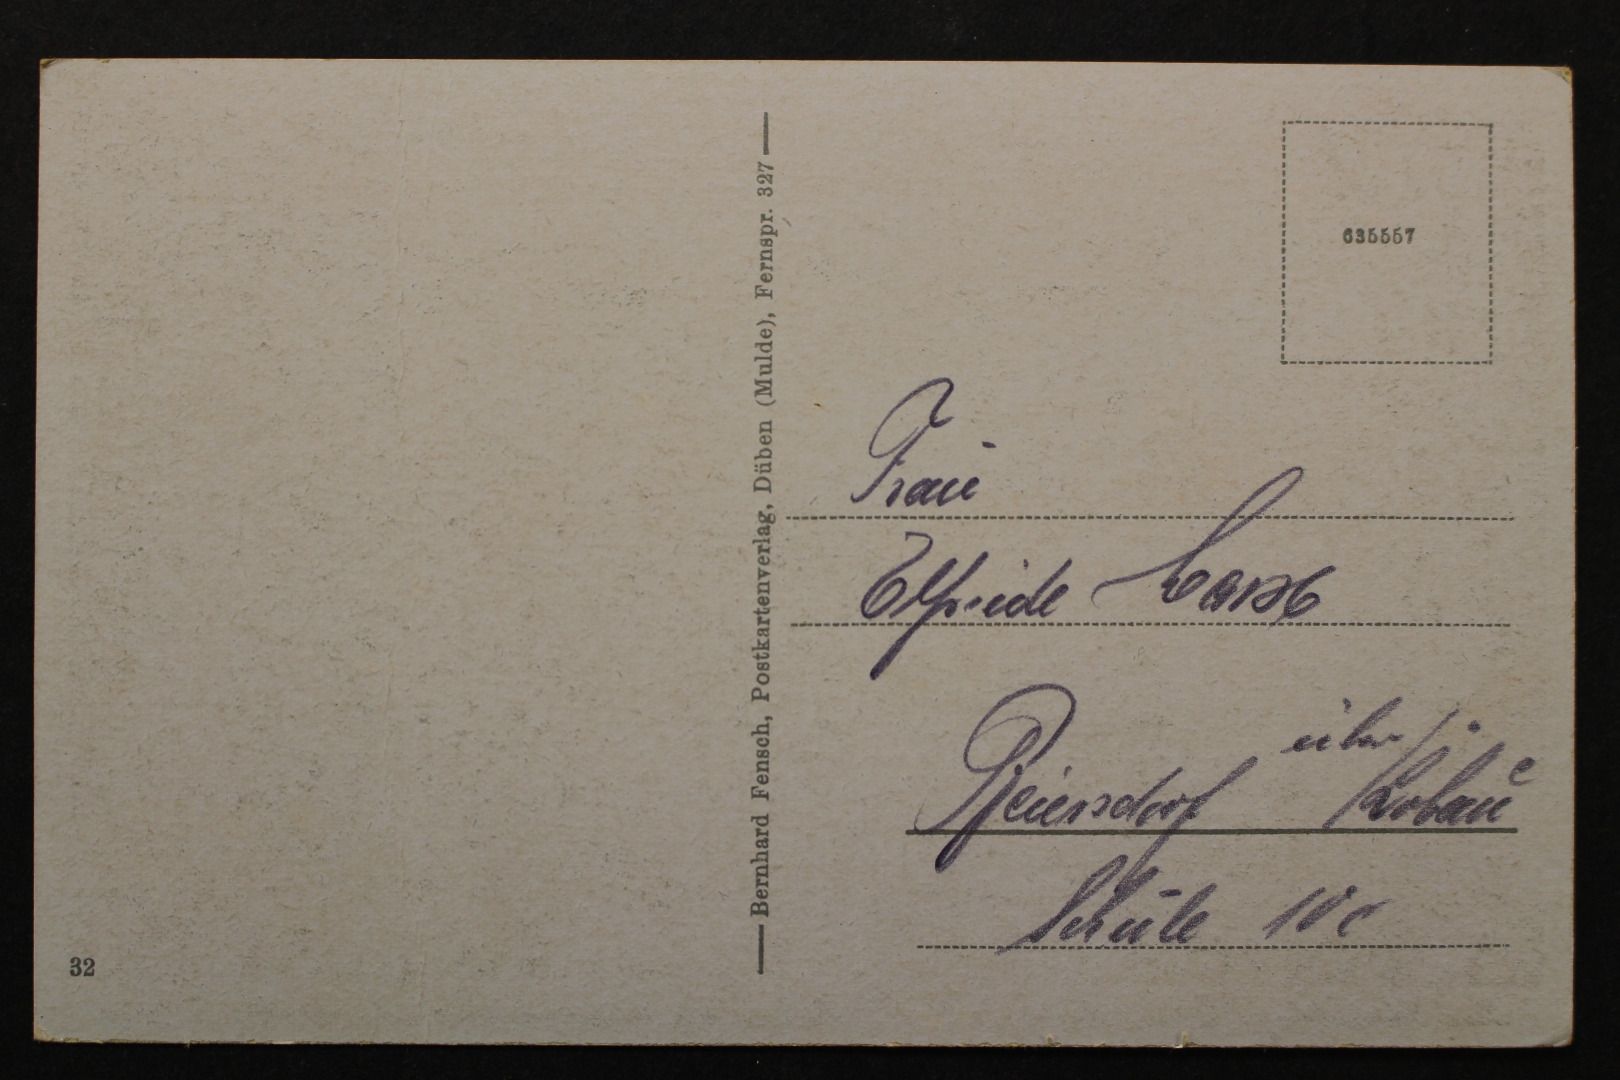 635557
Bernhard Fensch, Postkartenverlag, Düben (Mulde), Fernspr. 327
Frau
Elfriede
über
Beiersdorf Löbau
Schule
32